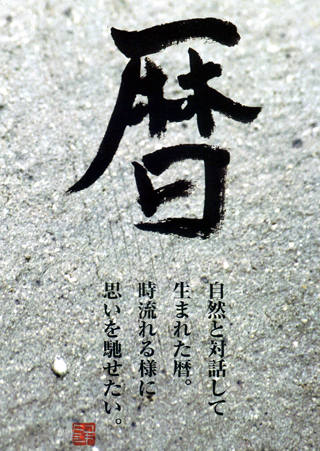 暦
自然と対話して
生まれた暦。
時流れる様に
思いを馳せたい。